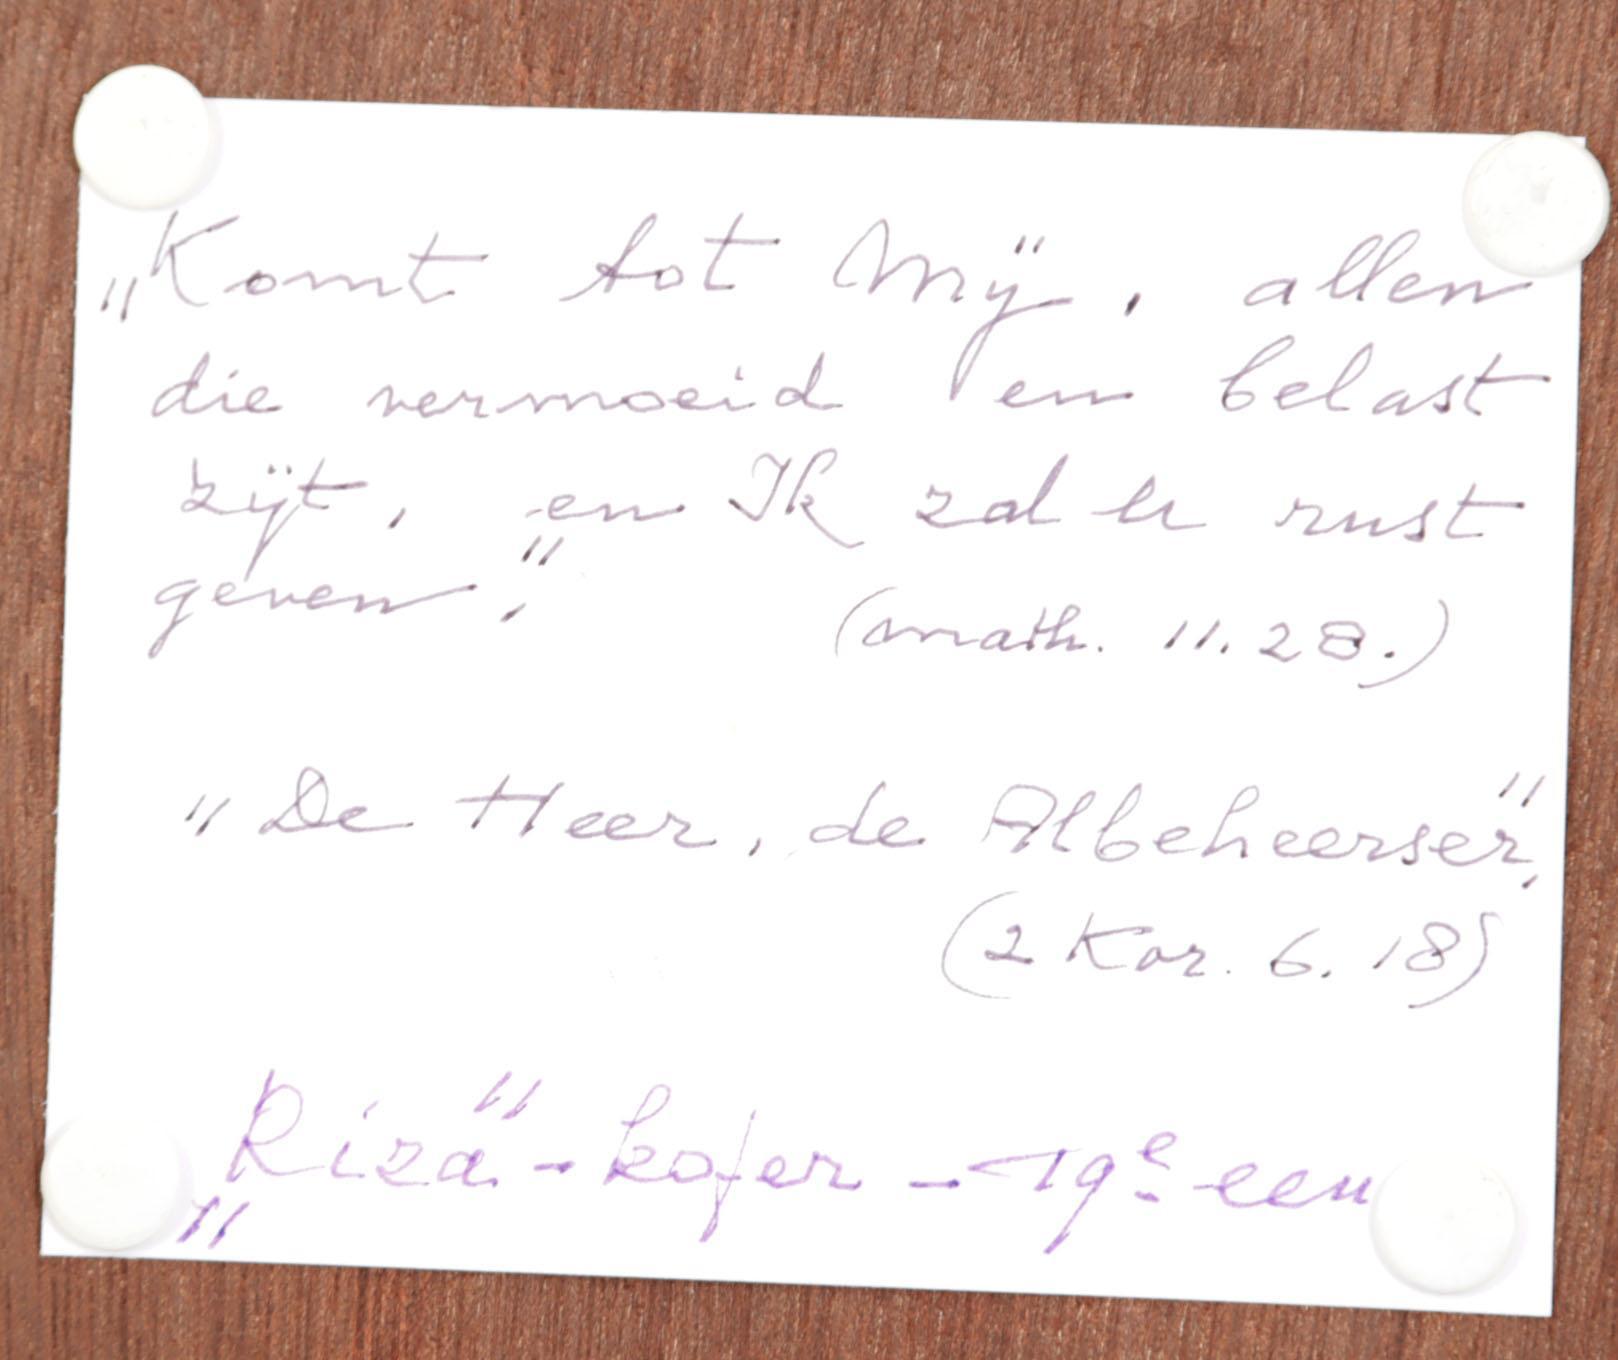 „Komt tot Mij, allen
die vermoeid en belast
zijt, en Ik zal u rust
geven."
(Math. 11.28.)
"De Heer, de Albeheerser",
(2 Kor. 6.18)
„Riza"-kofer - 19e eeu